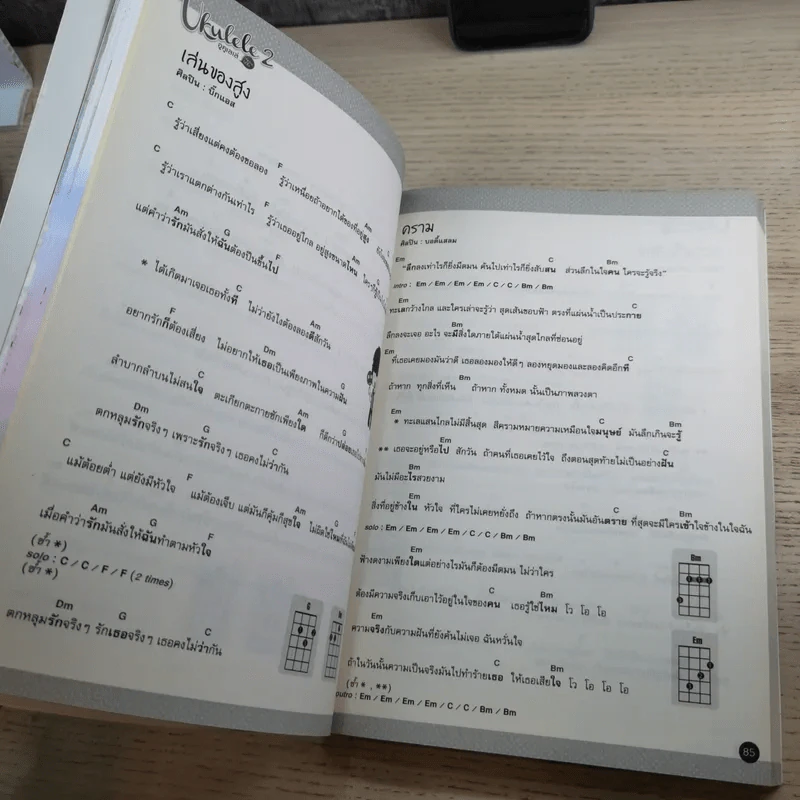 Ukulele 2
อูคูเลเล่
เล่นของสูง
ศิลปิน : บิ๊กแอส
C
รู้ว่าเสี่ยงแต่คงต้องขอลอง
F Am
รู้ว่าเหนื่อยถ้าอยากได้ของที่อยู่สูง
C
รู้ว่าเราแตกต่างกันเท่าไร
F Am
รู้ว่าเธออยู่ไกล อยู่สูงขนาดไหน
Am G F
แต่คำว่ารักมันสั่งให้ฉันต้องปีนขึ้นไป
G Am
* ได้เกิดมาเจอเธอทั้งที ไม่ว่ายังไงต้องลองดีสักวัน
F C G
อยากรักก็ต้องเสี่ยง ไม่อยากให้เธอเป็นเพียงภาพในความฝัน
G Am
ลำบากลำบนไม่สนใจ ตะเกียกตะกายซักเพียงใด
Dm G C
ตกหลุมรักจริงๆ เพราะรักจริงๆ เธอคงไม่ว่ากัน
C F Am
แม้ต้อยต่ำ แต่ยังมีหัวใจ แม้ต้องเจ็บ แต่มันก็คุ้มก็สุขใจ
Am G F
เมื่อคำว่ารักมันสั่งให้ฉันทำตามหัวใจ
(ซ้ำ *)
solo : C / C / F / F (2 times)
(ซ้ำ *)
Dm G C
ตกหลุมรักจริงๆ รักเธอจริงๆ เธอคงไม่ว่ากัน
G
คราม
ศิลปิน : บอดี้แสลม
Em C Bm
"ลึกลงเท่าไรก็ยิ่งมืดมน ค้นไปเท่าไรก็ยิ่งสับสน ส่วนลึกในใจคน ใครจะรู้จริง"
intro : Em / Em / Em / Em / C / C / Bm / Bm
Em C
ทะเลกว้างไกล และใครเล่าจะรู้ว่า สุดเส้นขอบฟ้า ตรงที่แผ่นน้ำเป็นประกาย
Bm
ลึกลงจะเจอ อะไร จะมีสิ่งใดภายใต้แผ่นน้ำสุดไกลที่ซ่อนอยู่
Em C
ที่เธอเคยมองมันว่าดี เธอลองมองให้ดีๆ ลองหยุดมองและลองคิดอีกที
Bm
ถ้าหาก ทุกสิ่งที่เห็น ถ้าหาก ทั้งหมด นั้นเป็นภาพลวงตา
Em C Bm
* ทะเลแสนไกลไม่มีสิ้นสุด สีครามหมายความเหมือนใจมนุษย์ มันลึกเกินจะรู้
Em C
** เธอจะอยู่หรือไป สักวัน ถ้าคนที่เธอเคยไว้ใจ ถึงตอนสุดท้ายไม่เป็นอย่างฝัน
Bm
มันไม่มีอะไรสวยงาม
Em C Bm
สิ่งที่อยู่ข้างใน หัวใจ ที่ใครไม่เคยหยั่งถึง ถ้าหากตรงนั้นมันอันตราย ที่สุดจะมีใครเข้าใจข้างในใจฉัน
solo : Em / Em / Em / Em / C / C / Bm / Bm
Em
ฟ้างดงามเพียงใดแต่อย่างไรมันก็ต้องมืดมน ไม่ว่าใคร
C Bm
ต้องมีความจริงเก็บเอาไว้อยู่ในใจของคน เธอรู้ใช่ไหม โว โอ โอ
Em
ความจริงกับความฝันที่ยังค้นไม่เจอ ฉันหวั่นใจ
C Bm
ถ้าในวันนั้นความเป็นจริงมันไปทำร้ายเธอ ให้เธอเสียใจ โว โอ โอ โอ
(ซ้ำ *, **)
outro : Em / Em / Em / Em / C / C / Bm / Bm
Bm
Em
85